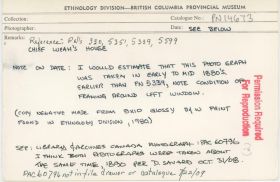 ETHNOLOGY DIVISION—BRITISH COLUMBIA PROVINCIAL MUSEUM
Collection:
Catalogue No: PN14673
Photographer:
Date: SEE BELOW
Remarks: Reference: PN's 330, 5351, 5339, 5599
CHIEF HOUSE
NOTE ON DATE: I WOULD ESTIMATE THAT THIS PHOTOGRAPH
WAS TAKEN IN EARLY TO MID 1880'S.
EARLIER THAN PN 5339, NOTE CONDITION OF
FRAMING AROUND LEFT WINDOW.
(COPY NEGATIVE MADE FROM 8X10 GLOSSY B/W PRINT
FOUND IN ETHNOLOGY DIVISION, 1980)
SEE: LIBRARY ARCHIVES CANADA PHOTOGRAPH: PAC 60796
I THINK BOTH PHOTOGRAPHS WERE TAKEN ABOUT
THE SAME TIME, 1890 PER D. SAVARD OCT 31/08.
PAC 60796 not in file drawer or catalogue
Permission Required
For Reproduction